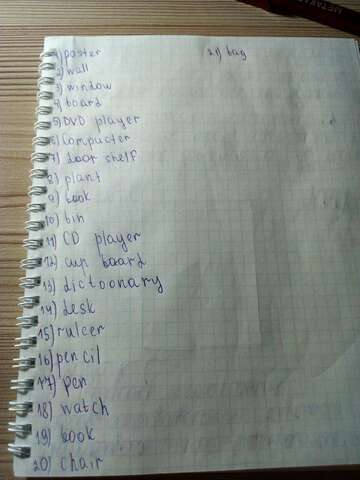 1) poster
2) wall
3) window
4) board
5) DVD player
6) Compucter
7) door shelf
8) plant
9) book
10) bin
11) CD player
12) cup board
13) dictoonary
14) desk
15) rulcer
16) pencil
17) pen
18) watch
19) book
20) chair
21) bag